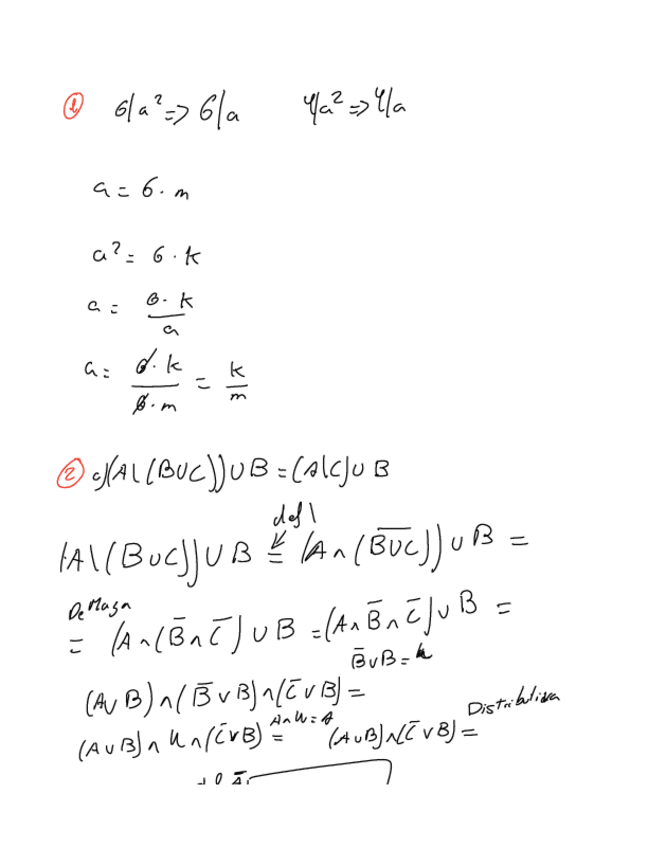 ① 6|a² => 6|a 4|a² => 4|a
a = 6 · m
a² = 6 · k
a = 6 · k / a
a = 6 · k / 6 · m = k / m
② c) (A\(B∪C))∪B = (A\C)∪B
def \
(A\(B∪C))∪B = (A∩(B̅∪̅C̅))∪B =
= (A∩(B̅∩C̅)∪B = (A∩B̅∩C̅)∪B =
B̅∪B = U
(A∪B)∩(B̅∪B)∩(C̅∪B) =
A∩U = A Distributiva
(A∪B)∩U∩(C̅∪B) = (A∪B)∩(C̅∪B) =